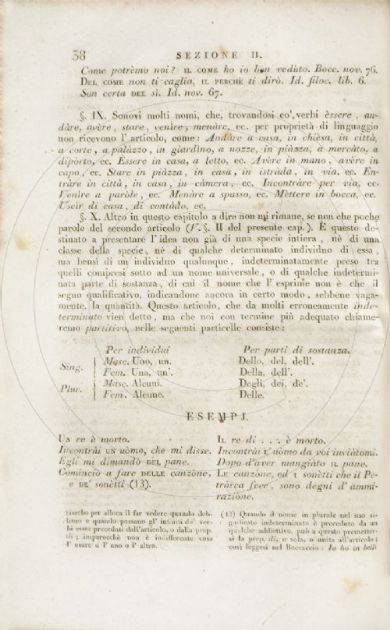 38 SEZIONE II.
Come potremo noi? IL COME ho io ben veduto. Bocc. nov. 76.
DEL COME non ti caglia, IL PERCHÈ ti dirò. Id. filoc. lib. 6.
Son certa DEL sì. Id. nov. 67.
§. IX. Sonovi molti nomi, che, trovandosi co' verbi èssere, an-
dàre, avère, stare, venire, menàre, ec. per proprietà di linguaggio
non ricevono l'articolo, come: Andàre a casa, in chiesa, in città,
a corte, a palazzo, in giardino, a nozze, in piàzza, a mercàto, a
dipòrto, ec. Èssere in casa, a letto, ec. Avère in mano, avère in
capo, ec. Stare in piàzza, in casa, in istràda, in via, ec. En-
tràre in città, in casa, in càmera, ec. Incontràre per via, ec.
Venìre a paròle, ec. Menàre a spasso, ec. Mèttere in bocca, ec.
Uscìr di casa, di contàdo, ec.
§. X. Altro in questo capitolo a dire non mi rimane, se non che poche
parole del secondo articolo (V. §. II del presente cap.). È questo de-
stinato a presentare l'idea non già di una specie intiera, nè di una
classe della specie, nè di qualche determinato individuo di essa,
ma bensì di un individuo qualunque, indeterminatamente preso tra
quelli compresi sotto ad un nome universale, o di qualche indetermi-
nata parte di sostanza, di cui il nome che l'esprime non è che il
segno qualificativo, indicandone ancora in certo modo, sebbene vaga-
mente, la quantità. Questo articolo, che da molti erroneamente inde-
terminato vien detto, ma che noi con termine più adequato chiame-
remo partitivo, nelle seguenti particelle consiste:
Per individui Per parti di sostanza.
Sing. Masc. Uno, un. Dello, del, dell'.
Fem. Una, un'. Della, dell'.
Plur. Masc. Alcuni. Degli, dei, de'.
Fem. Alcune. Delle.
ESEMPJ.
UN re è morto.
Incontrài UN uòmo, che mi disse.
Egli mi dimandò DEL pane.
Cominciò a fare DELLE canzòne,
e DE' sonètti (13).
IL re di . . . è morto.
Incontrài L'uòmo da voi inviàtomi.
Dopo d'aver mangiàto IL pane.
LE canzòne, ed I sonètti che il Pe-
tràrca fece, sono degni d'ammi-
razione.
riserbo per allora il far vedere quando deb-
bono e quando possono gl'infiniti de' ver-
bi esser preceduti dall'articolo, o dalla prep.
di; imperocchè non è indifferente cosa
l'usare o l'uno o l'altro.
(13) Quando il nome in plurale nel suo si-
gnificato indeterminato è preceduto da un
qualche addiettivo, può a questo premetter-
si la prep. di, o sola, o unita all'articolo;
così leggesi nel Boccaccio: Io ho in belli